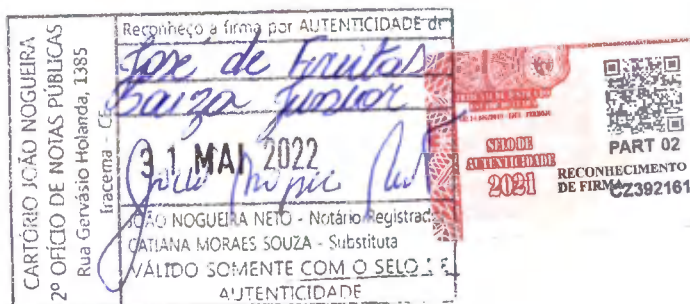 CARTÓRIO JOÃO NOGUEIRA
2º OFÍCIO DE NOTAS PÚBLICAS
Rua Gervásio Holanda, 1385
Iracema - CE
Reconheço a firma por AUTENTICIDADE de
José de Freitas
Souza Junior
31 MAI 2022
JOÃO NOGUEIRA NETO - Notário Registrad
CATIANA MORAES SOUZA - Substituta
VÁLIDO SOMENTE COM O SELO DE
AUTENTICIDADE
SELO DE
AUTENTICIDADE
2021
PART 02
RECONHECIMENTO
DE FIRMA
CZ392161